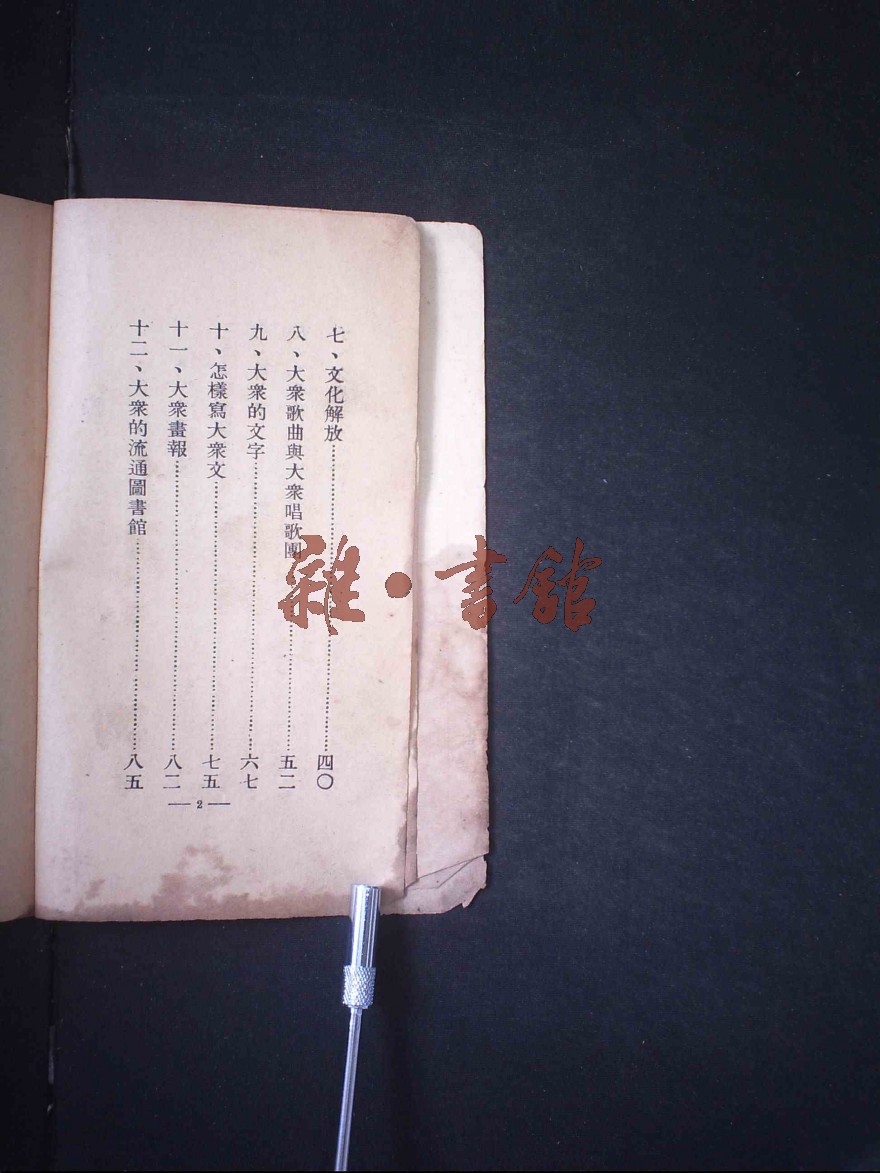 七、文化解放……四〇
八、大衆歌曲與大衆唱歌團……五二
九、大衆的文字……六七
十、怎樣寫大衆文……七五
十一、大衆畫報……八二
十二、大衆的流通圖書館……八五
— 2 —
雜·書館